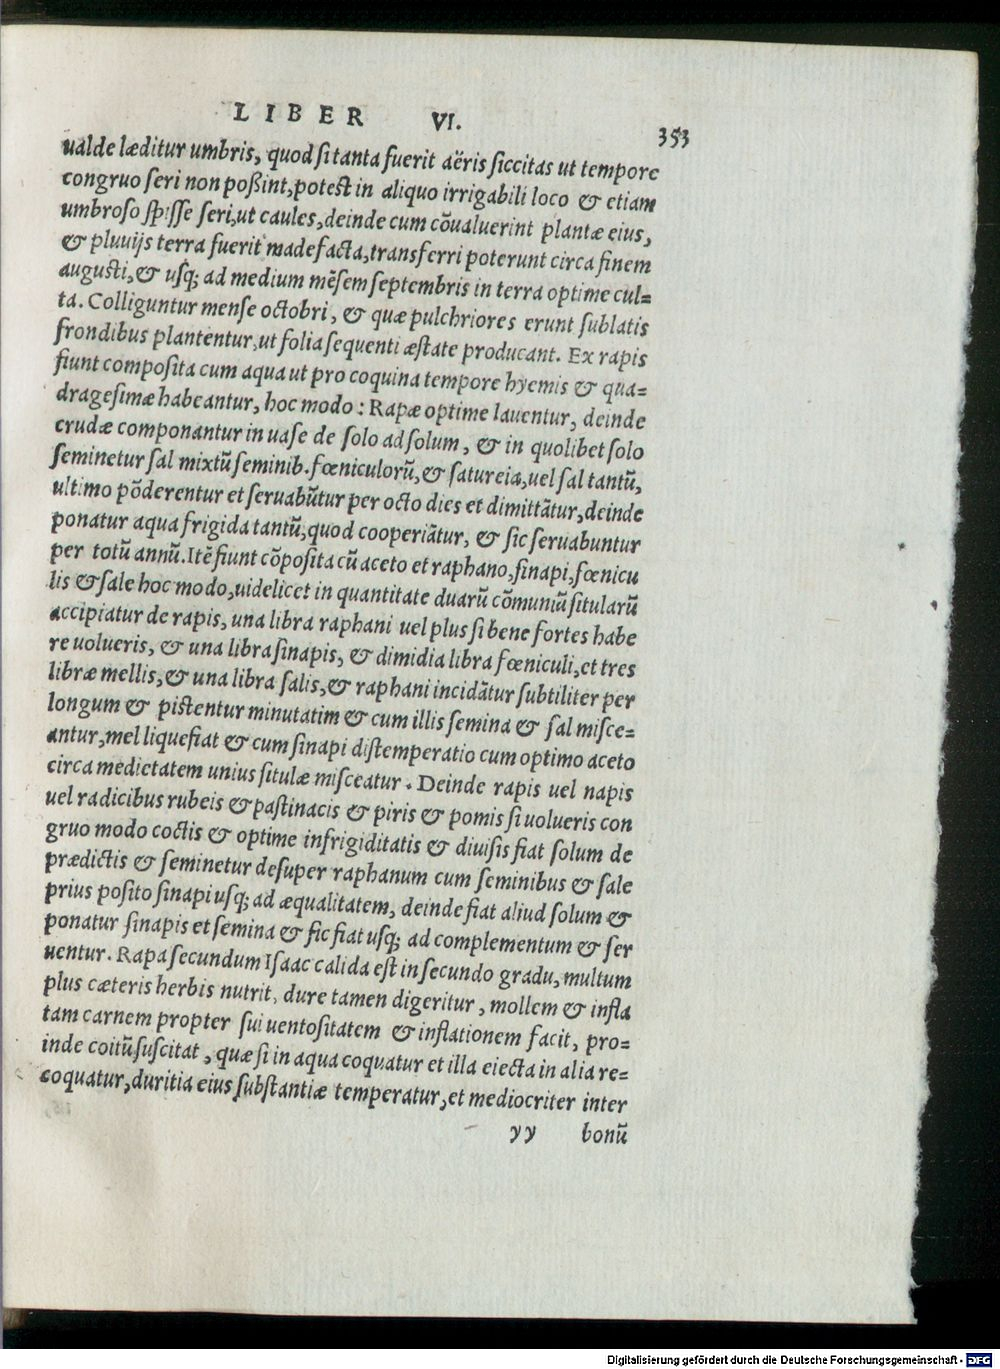 LIBER VI. 353
ualde læditur umbris, quod si tanta fuerit aëris siccitas ut tempore
congruo seri non poßint, potest in aliquo irrigabili loco & etiam
umbroso spisse seri, ut caules, deinde cum cõualuerint plantæ eius,
& pluuijs terra fuerit madefacta, transferri poterunt circa finem
augusti, & usq; ad medium mẽsem septembris in terra optime cul=
ta. Colliguntur mense octobri, & quæ pulchriores erunt sublatis
frondibus plantentur, ut folia sequenti æstate producant. Ex rapis
fiunt composita cum aqua ut pro coquina tempore hyemis & qua=
dragesimæ habeantur, hoc modo: Rapæ optime lauentur, deinde
crudæ componantur in uase de solo ad solum, & in quolibet solo
seminetur sal mixtũ seminib. fœniculorũ, & satureia, uel sal tantũ,
ultimo põderentur et seruabũtur per octo dies et dimittãtur, deinde
ponatur aqua frigida tantũ, quod cooperiãtur, & sic seruabuntur
per totũ annũ. Itẽ fiunt cõposita cũ aceto et raphano, sinapi, fœnicu
lis & sale hoc modo, uidelicet in quantitate duarũ cõmuniũ sitularũ
accipiatur de rapis, una libra raphani uel plus si bene fortes habe
re uolueris, & una libra sinapis, & dimidia libra fœniculi, et tres
libræ mellis, & una libra salis, & raphani incidãtur subtiliter per
longum & pistentur minutatim & cum illis semina & sal misce=
antur, mel liquefiat & cum sinapi distemperatio cum optimo aceto
circa medietatem unius situlæ misceatur. Deinde rapis uel napis
uel radicibus rubeis & pastinacis & piris & pomis si uolueris con
gruo modo coctis & optime infrigiditatis & diuisis fiat solum de
prædictis & seminetur desuper raphanum cum seminibus & sale
prius posito sinapi usq; ad æqualitatem, deinde fiat aliud solum &
ponatur sinapis et semina & sic fiat usq; ad complementum & ser
uentur. Rapa secundum Isaac calida est in secundo gradu, multum
plus cæteris herbis nutrit, dure tamen digeritur, mollem & infla
tam carnem propter sui uentositatem & inflationem facit, pro=
inde coitũ suscitat, quæ si in aqua coquatur et illa eiecta in alia re=
coquatur, duritia eius substantiæ temperatur, et mediocriter inter
yy bonũ
Digitalisierung gefördert durch die Deutsche Forschungsgemeinschaft - DFG